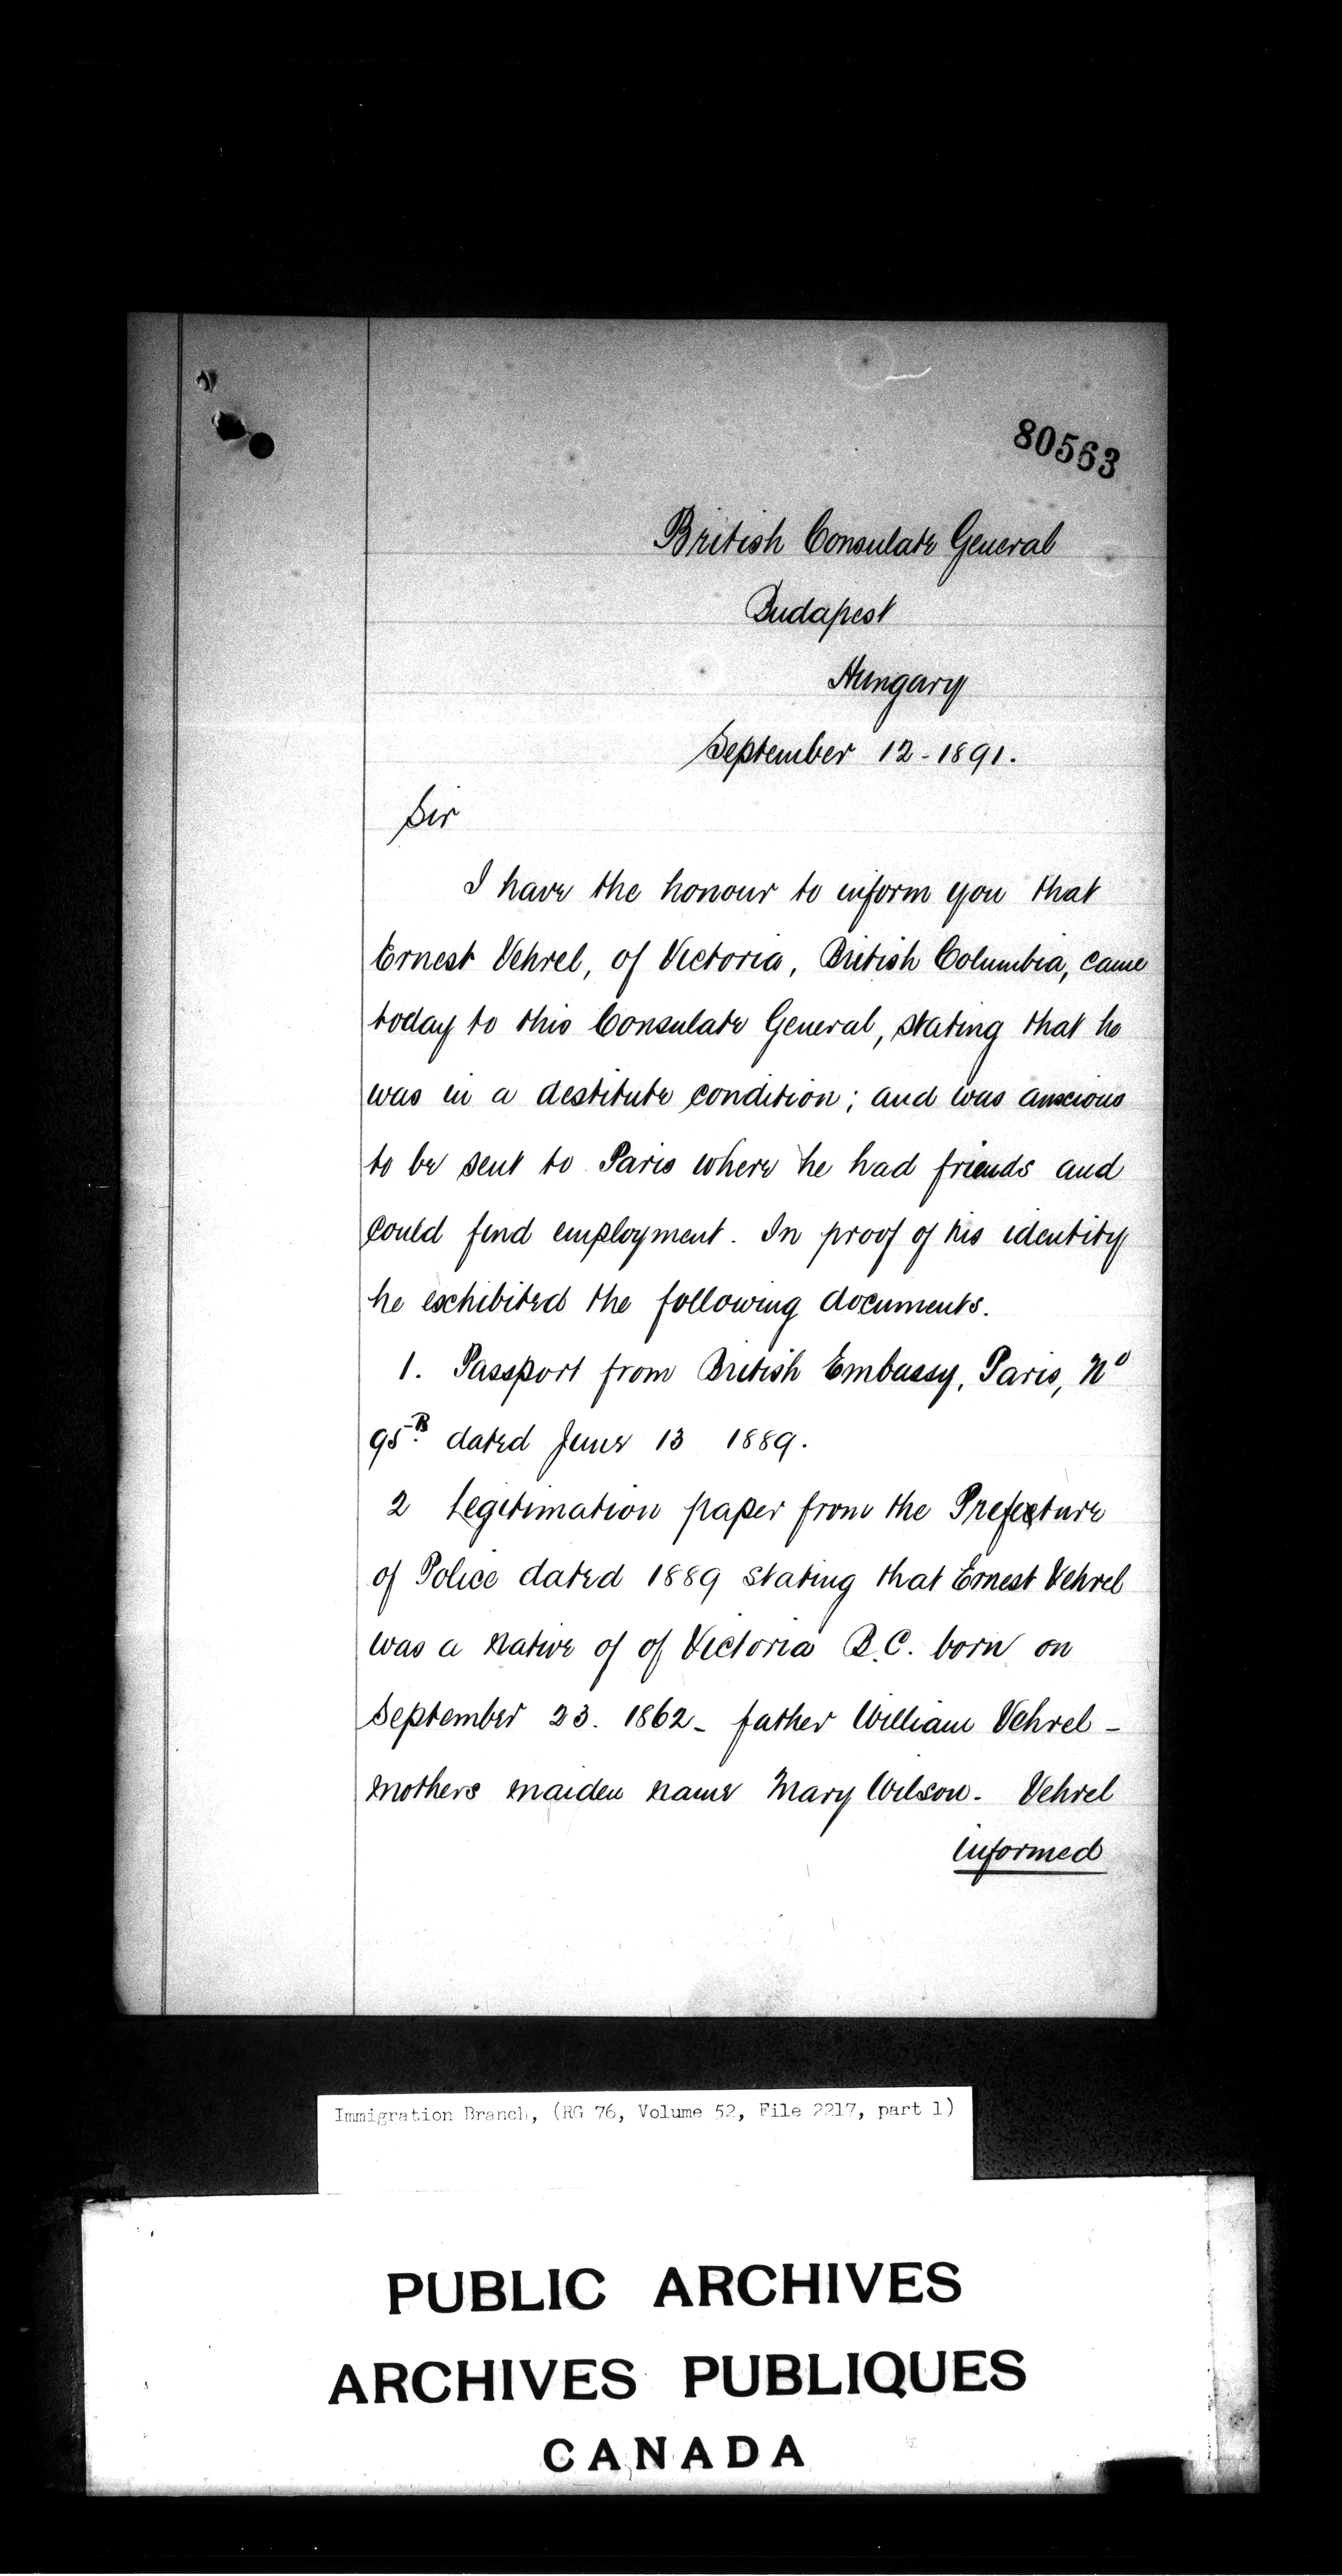 80563
British Consulate General
Budapest
Hungary
September 12 - 1891.
Sir
I have the honour to inform you that
Ernest Vehrel, of Victoria, British Columbia, came
today to this Consulate General, stating that he
was in a destitute condition; and was anxious
to be sent to Paris where he had friends and
could find employment. In proof of his identity
he exhibited the following documents.
1. Passport from British Embassy, Paris, No
95B. dated June 13 1889.
2 Legitimation paper from the Prefecture
of Police dated 1889 stating that Ernest Vehrel
was a native of of Victoria B.C. born on
September 23. 1862 - father William Vehrel -
mothers maiden name Mary Wilson. Vehrel
informed
Immigration Branch, (RG 76, Volume 52, File 2217, part 1)
PUBLIC ARCHIVES
ARCHIVES PUBLIQUES
CANADA